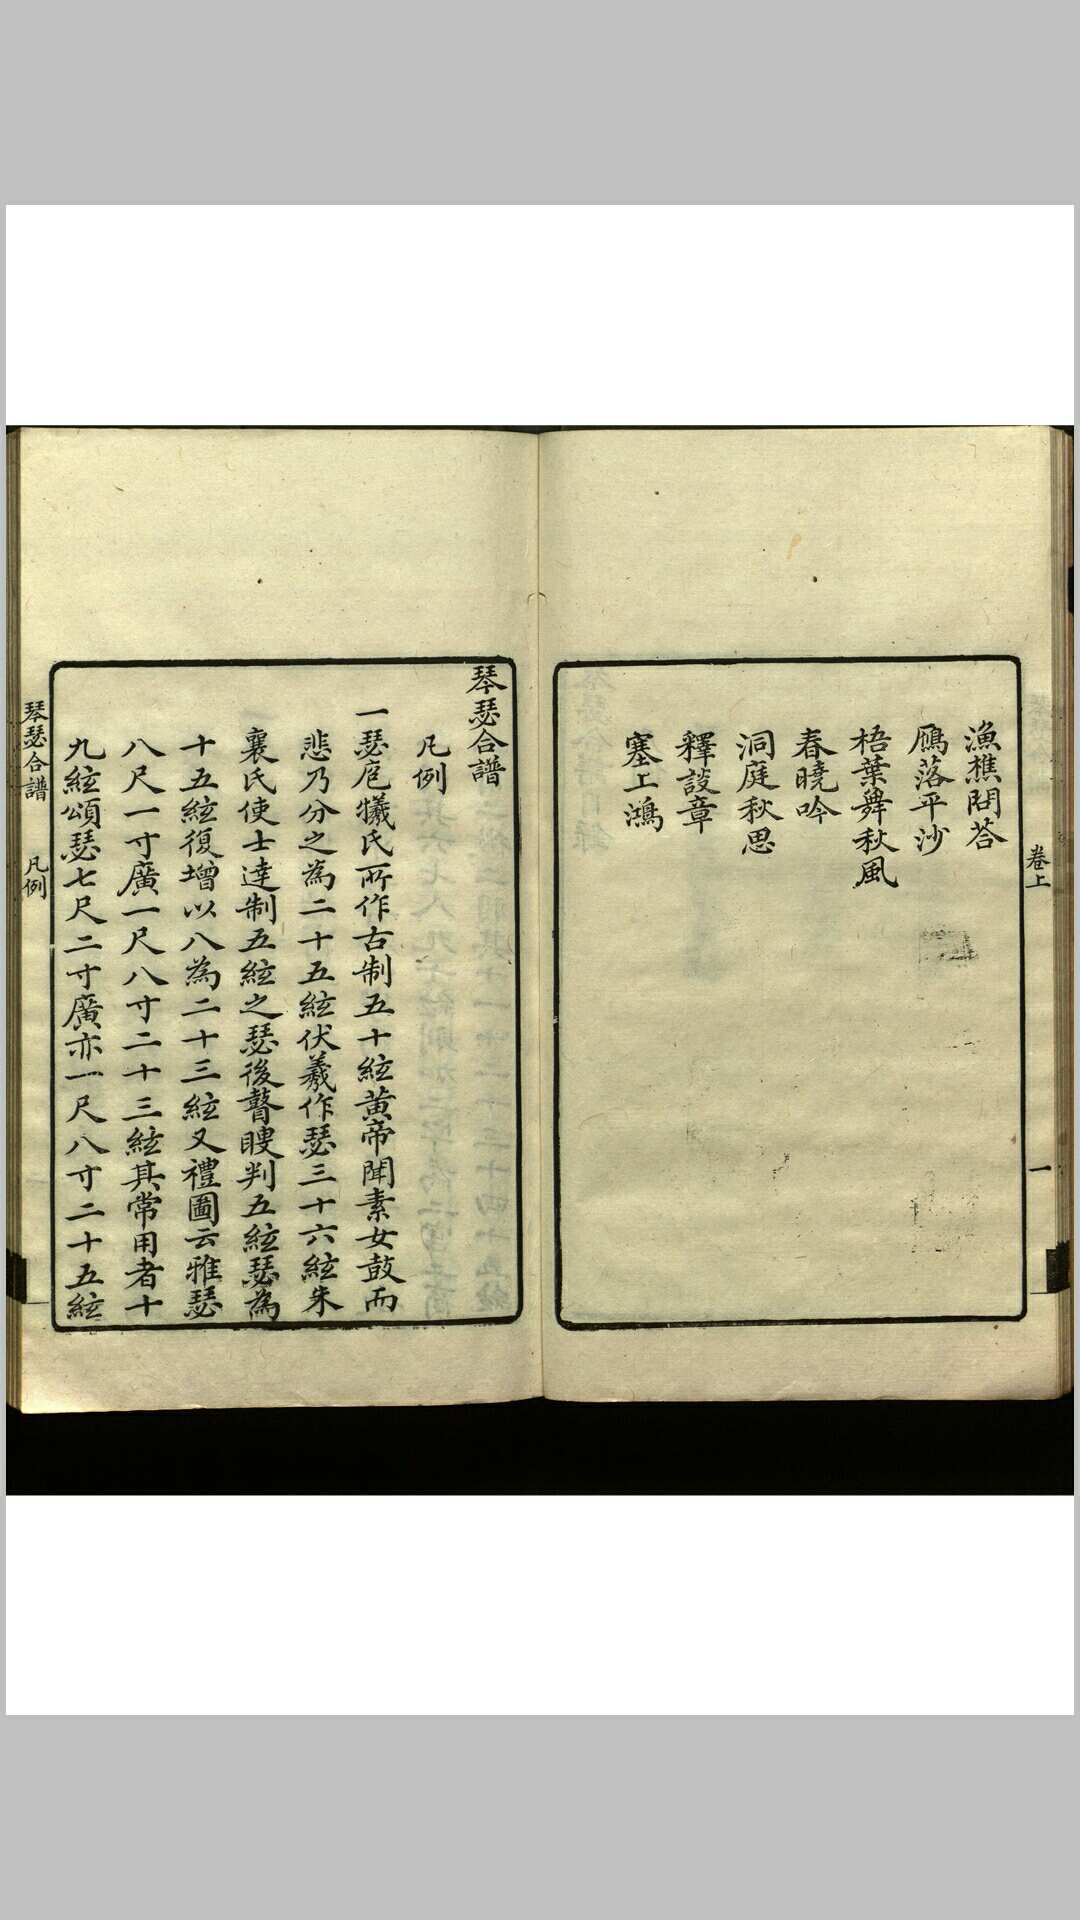 卷上
一
漁樵問荅
鴈落平沙
梧葉舞秋風
春曉吟
洞庭秋思
釋談章
塞上鴻
琴瑟合譜
凡例
一瑟庖犧氏所作古制五十絃黃帝聞素女鼓而
悲乃分之為二十五絃伏羲作瑟三十六絃朱
襄氏使士達制五絃之瑟後瞽瞍判五絃瑟為
十五絃復增以八為二十三絃又禮圖云雅瑟
八尺一寸廣一尺八寸二十三絃其常用者十
九絃頌瑟七尺二寸廣亦一尺八寸二十五絃
琴瑟合譜
凡例